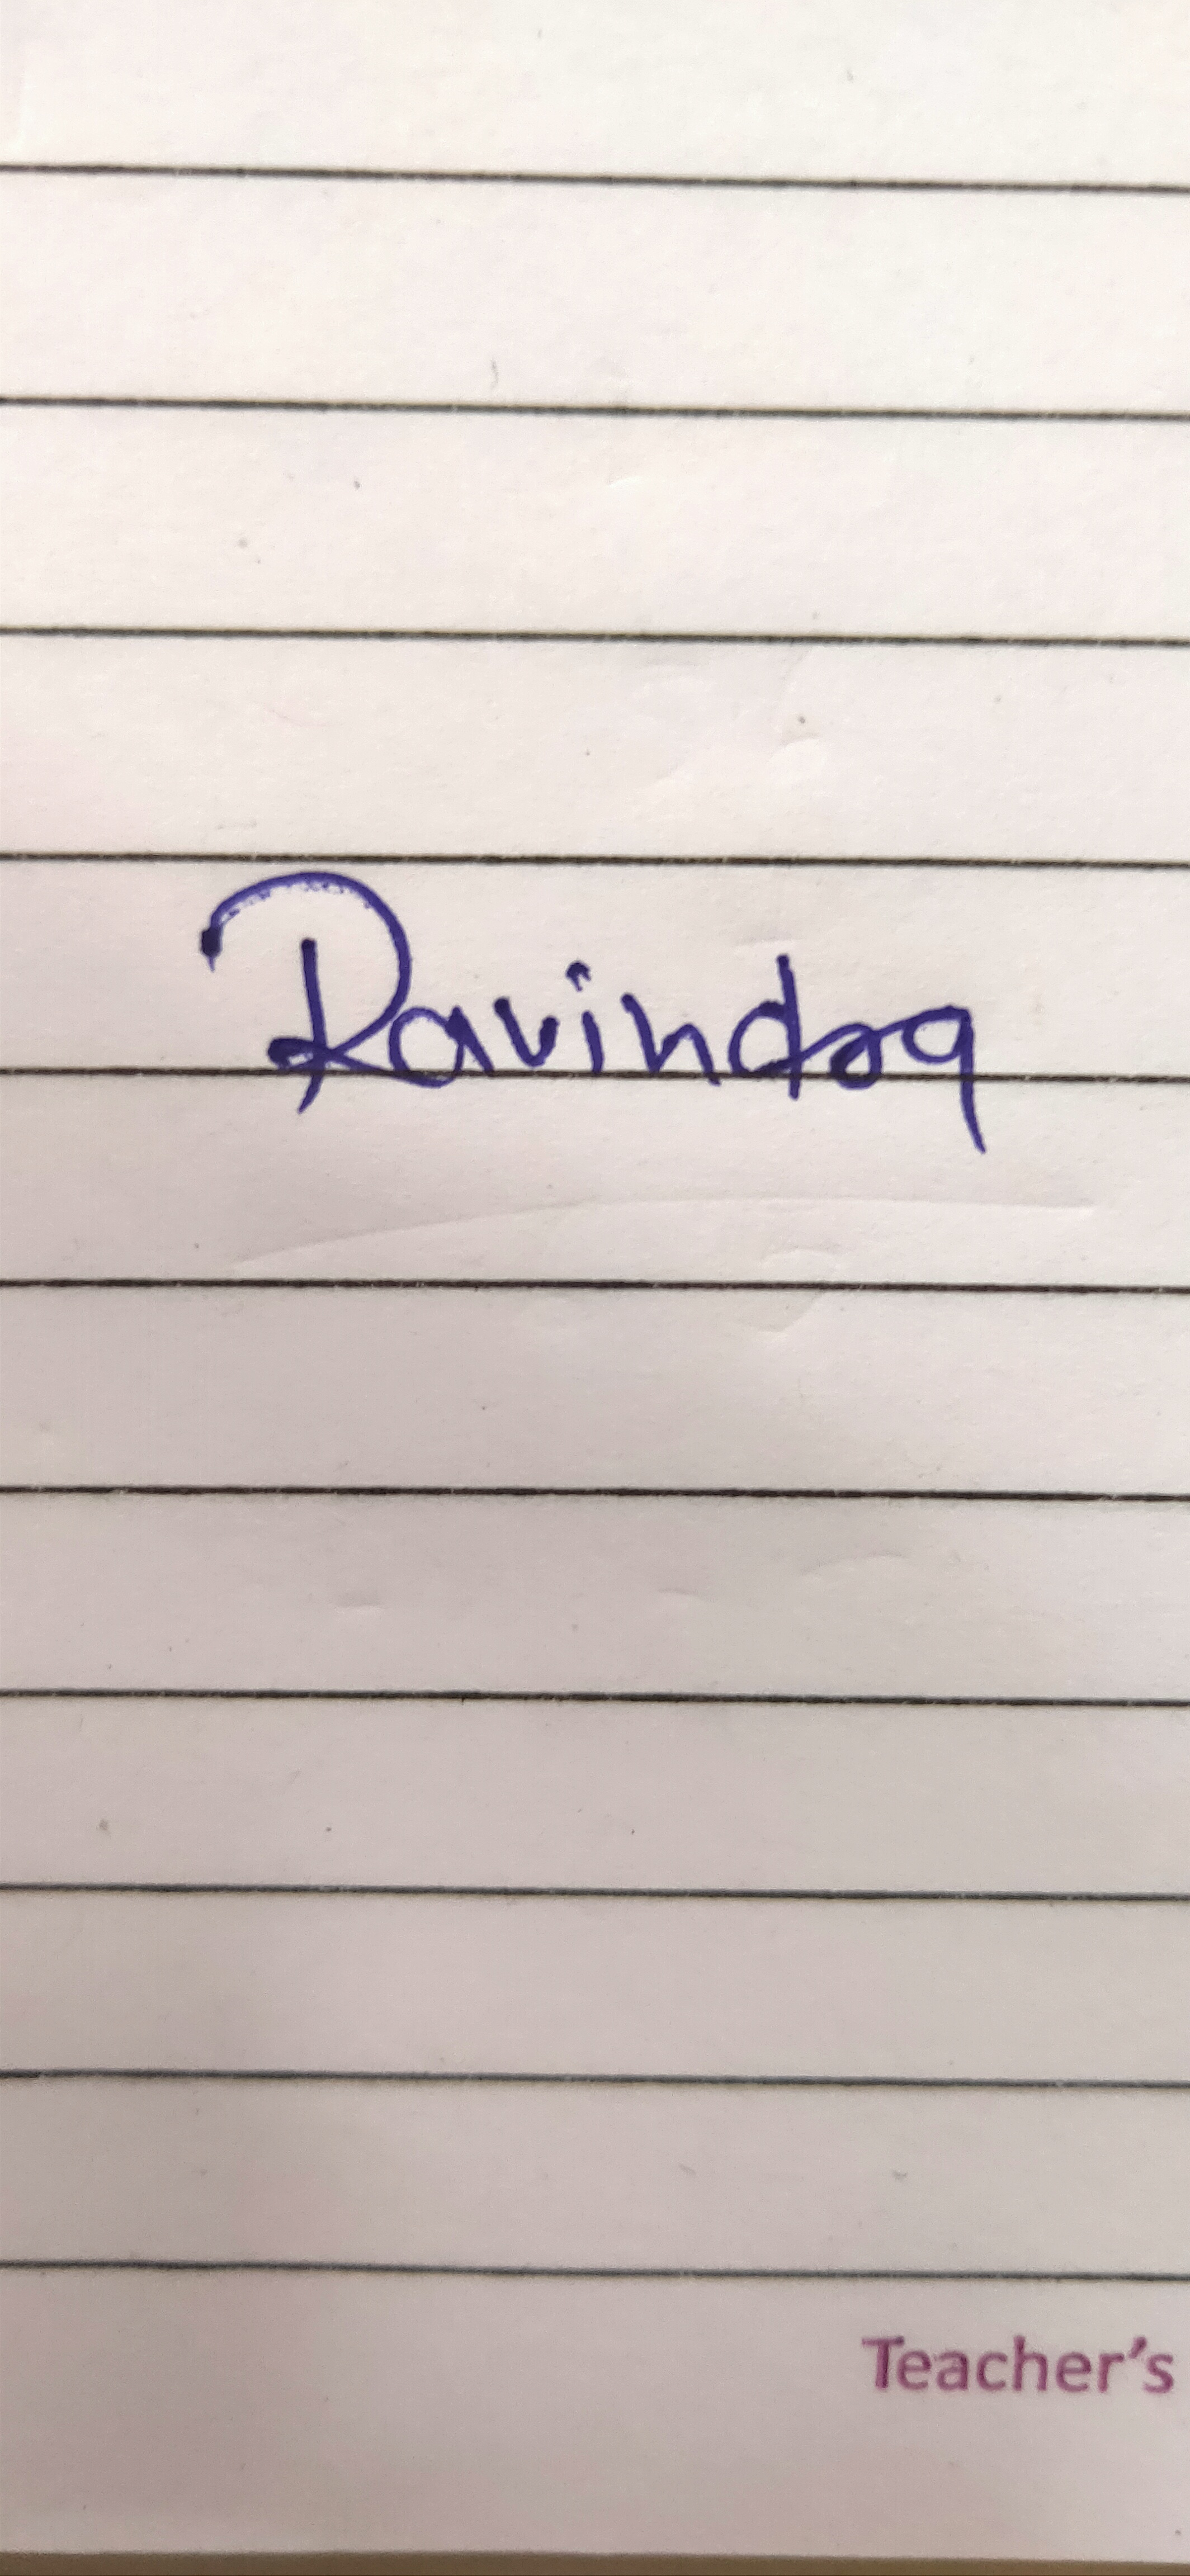 Ravindra
Teacher's